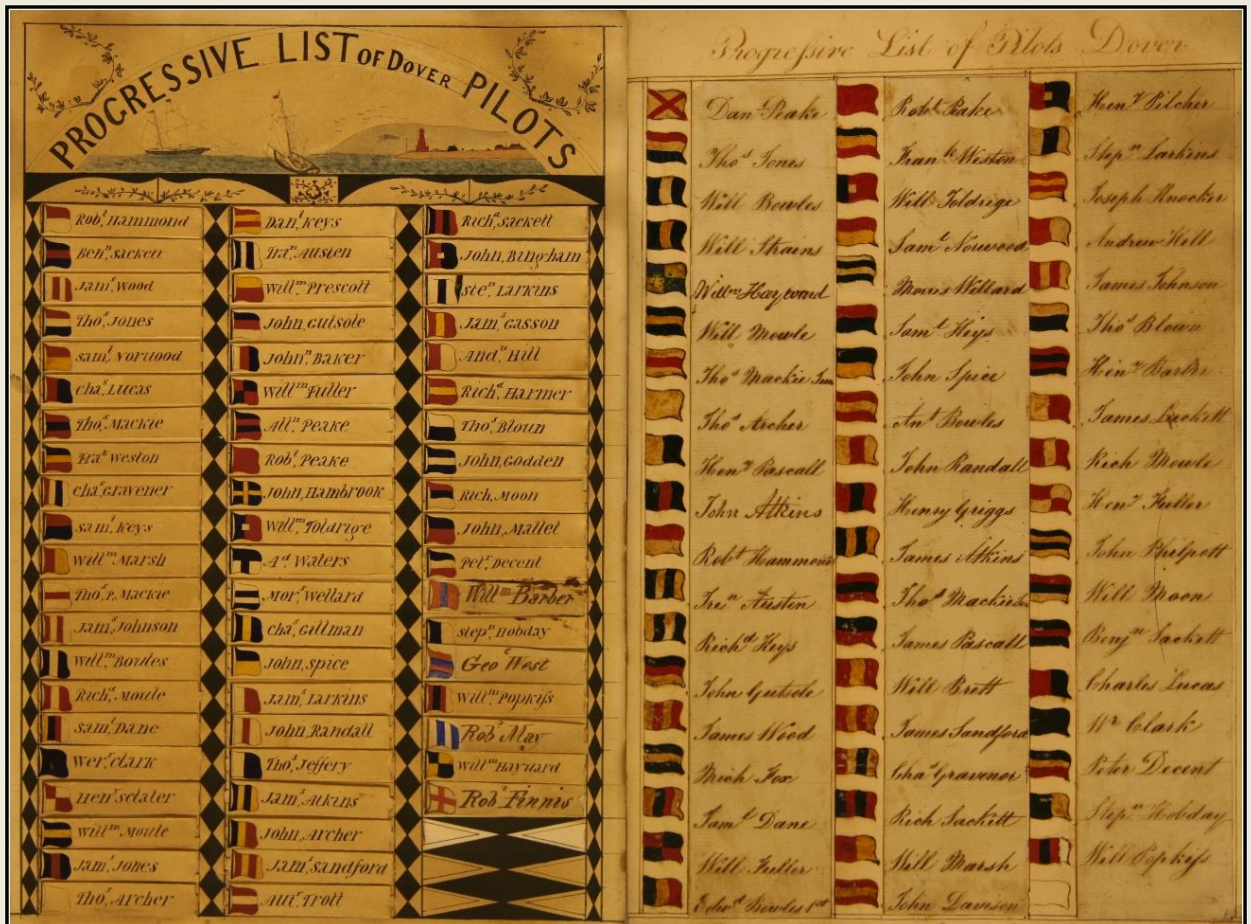 PROGRESSIVE LIST OF DOVER PILOTS
Rob^t, Hammond
Ben^n, Sackett
Jam^s, Wood
Tho^s, Jones
Sam^l, Norwood
Cha^s, Lucas
Tho^s, Mackie
Fra^k Weston
Cha^s, Gravener
Sam^l, Keys
Will^m Marsh
Tho^s, P, Mackie
Jam^s, Johnson
Will^m, Bowles
Rich^d, Moule
Sam^l, Dane
Wer^r, Clark
Hen^y Sclater
Will^m Moule
Jam^s, Jones
Tho^s, Archer
Dan^l, Keys
Fra^s, Austen
Will^m, Prescott
John, Gutsole
John^n, Baker
Will^m Fuller
All^n, Peake
Rob^t, Peake
John, Hambrook
Will^m, Toldrige
A^d, Waters
Mor^s, Wellard
Cha^s, Gillman
John, Spice
Jam^s, Larkins
John, Randall
Tho^s, Jeffery
Jam^s, Atkins
John, Archer
Jam^s, Sandford
Trott
Rich^d, Sackett
John, Bingham
Ste^n, Larkins
Jam^s, Gasson
And^w, Hill
Rich^d, Harmer
Tho^s, Bloun
John, Godden
Rich, Moon
John, Mallet
Pet^r, Decent
Will^m Barber
Step^n, Hobday
Geo^e West
Will^m Popkiss
Rob^t May
Will^m Hayward
Rob^t Finnis
Progressive List of Pilots Dover
Dan Peake
Tho^s Jones
Will Bowles
Will Strains
Will^m Hayward
Will Mowle
Tho^s Mackie Jun
Tho^s Archer
Hen^y Pascall
John Atkins
Rob^t Hammond
Fre^n Austen
Rich^d Keys
John Gutsole
James Wood
Mich Fox
Sam^l Dane
Will Fuller
Edw^d Bowles 1st
Rob^t Peake
Fran^k Weston
Will Toldrige
Sam^l Norwood
Morris Willard
Sam^l Keys
John Spice
An^t Bowles
John Randall
Henry Griggs
James Atkins
Tho^s Mackie
James Pascall
Will Brett
James Sandford
Cha^s Gravenor
Rich Sackett
Will Marsh
John Davison
Hen^y Pilcher
Step^n Larkins
Joseph Knocker
Andrew Hill
James Johnson
Tho^s Blown
Hen^y Barber
James Beckett
Rich Mowle
Hen^y Fuller
John Philpott
Will Moon
Benj^n Sackett
Charles Lucas
W^r Clark
Peter Decent
Step^n Hobday
Will Popkiss